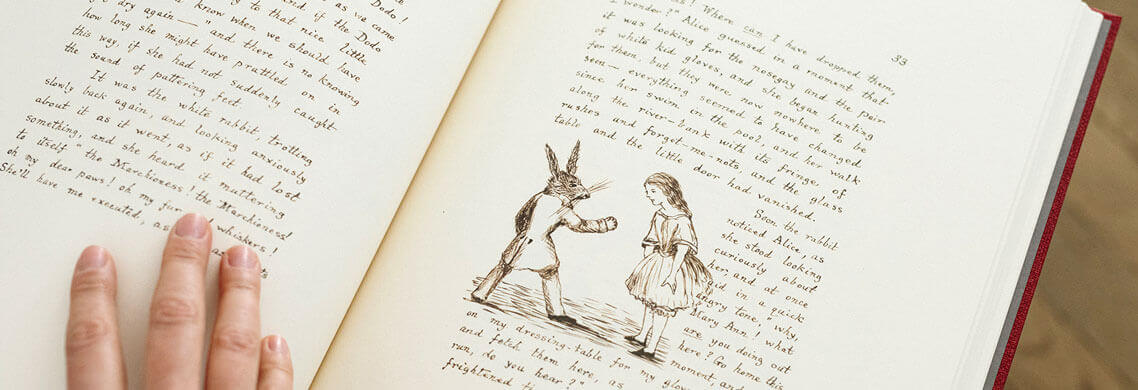 Dodo!
as we came
and if the Dodo
to that nice little
know when we should have
dry again — " and there is no knowing
how long she might have prattled on in
this way, if she had not suddenly caught
the sound of pattering feet.
It was the white rabbit, trotting
slowly back again, and looking anxiously
about it as it went, as if it had lost
something, and she heard it muttering
to itself "the Marchioness! the Marchioness!
oh my dear paws! oh my fur whiskers!
She'll have me executed, as
33
as! Where can I have dropped them,
I wonder?" Alice guessed in a moment that
it was looking for the nosegay and the pair
of white kid gloves, and she began hunting
for them, but they were now nowhere to be
seen — everything seemed to have changed
since her swim in the pool, and her walk
along the river-bank with its fringe of
rushes and forget-me-nots, and the glass
table and the little door had vanished.
Soon the rabbit
noticed Alice, as
she stood looking
curiously about
her, and at once
said in a quick
angry tone, "why,
Mary Ann! what
are you doing out
here? Go home this
moment, and
on my dressing-table for my
and fetch them here, as
run, do you hear?"
frightened